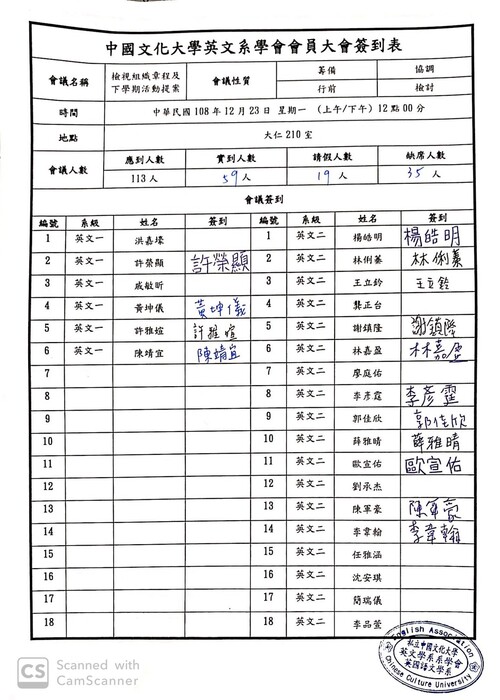 中國文化大學英文系學會會員大會簽到表
會議名稱 檢視組織章程及下學期活動提案 會議性質 籌備 協調
行前 檢討
時間 中華民國 108 年 12 月 23 日 星期一 (上午/下午) 12 點 00 分
地點 大仁 210 室
會議人數 應到人數 實到人數 請假人數 缺席人數
113 人 59 人 19 人 35 人
會議簽到
編號 系級 姓名 簽到 編號 系級 姓名 簽到
1 英文一 洪嘉壕 1 英文二 楊皓明 楊皓明
2 英文一 許榮顯 許榮顯 2 英文二 林俐蓁 林俐蓁
3 英文一 戚敏昕 3 英文二 王立鈴 王立鈴
4 英文一 黃坤儀 黃坤儀 4 英文二 龔正台
5 英文一 許雅媗 許雅媗 5 英文二 謝鎮隆 謝鎮隆
6 英文一 陳靖宜 陳靖宜 6 英文二 林嘉盈 林嘉盈
7 7 英文二 廖庭佑
8 8 英文二 李彥霆 李彥霆
9 9 英文二 郭佳欣 郭佳欣
10 10 英文二 薛雅晴 薛雅晴
11 11 英文二 歐宣佑 歐宣佑
12 12 英文二 劉承杰
13 13 英文二 陳軍豪 陳軍豪
14 14 英文二 李韋翰 李韋翰
15 15 英文二 任雅涵
16 16 英文二 沈安琪
17 17 英文二 簡瑞儀
18 18 英文二 李品萱
English Association
私立中國文化大學
英文學系系學會
英國語文學系
Chinese Culture University
CS Scanned with
CamScanner